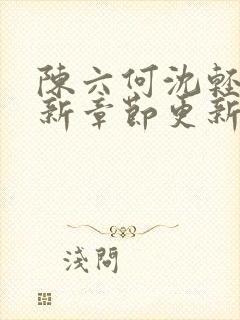 陳六何沈輕
新章節更新
淺問